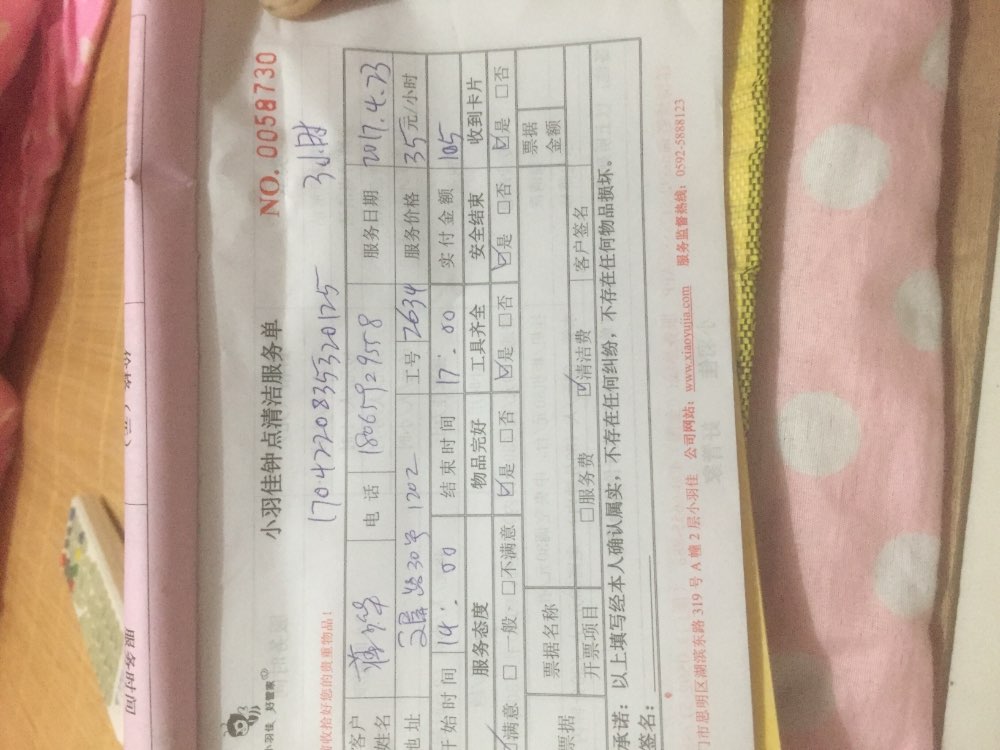 小羽佳 好管家
小羽佳钟点清洁服务单
NO. 0058730
请收拾好您的贵重物品!
1704220835320125
3小时
客户姓名 电话 18065929558 服务日期 2017.4.23
地址 30号 1702 工号 2634 服务价格 35元/小时
开始时间 14:00 结束时间 17:00 实付金额 105
服务态度 物品完好 工具齐全 安全结束 收到卡片
☑满意 □一般 □不满意 ☑是 □否 ☑是 □否 ☑是 □否 ☑是 □否
票据 票据名称 票据金额
开票项目 □服务费 ☑清洁费 客户签名
承诺:以上填写经本人确认属实,不存在任何纠纷,不存在任何物品损坏。
签名:
门市思明区湖滨东路 319 号 A 幢 2 层小羽佳 公司网站:www.xiaoyujia.com 服务监督热线:0592-5888123